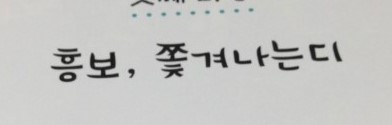 흥보, 쫓겨나는디